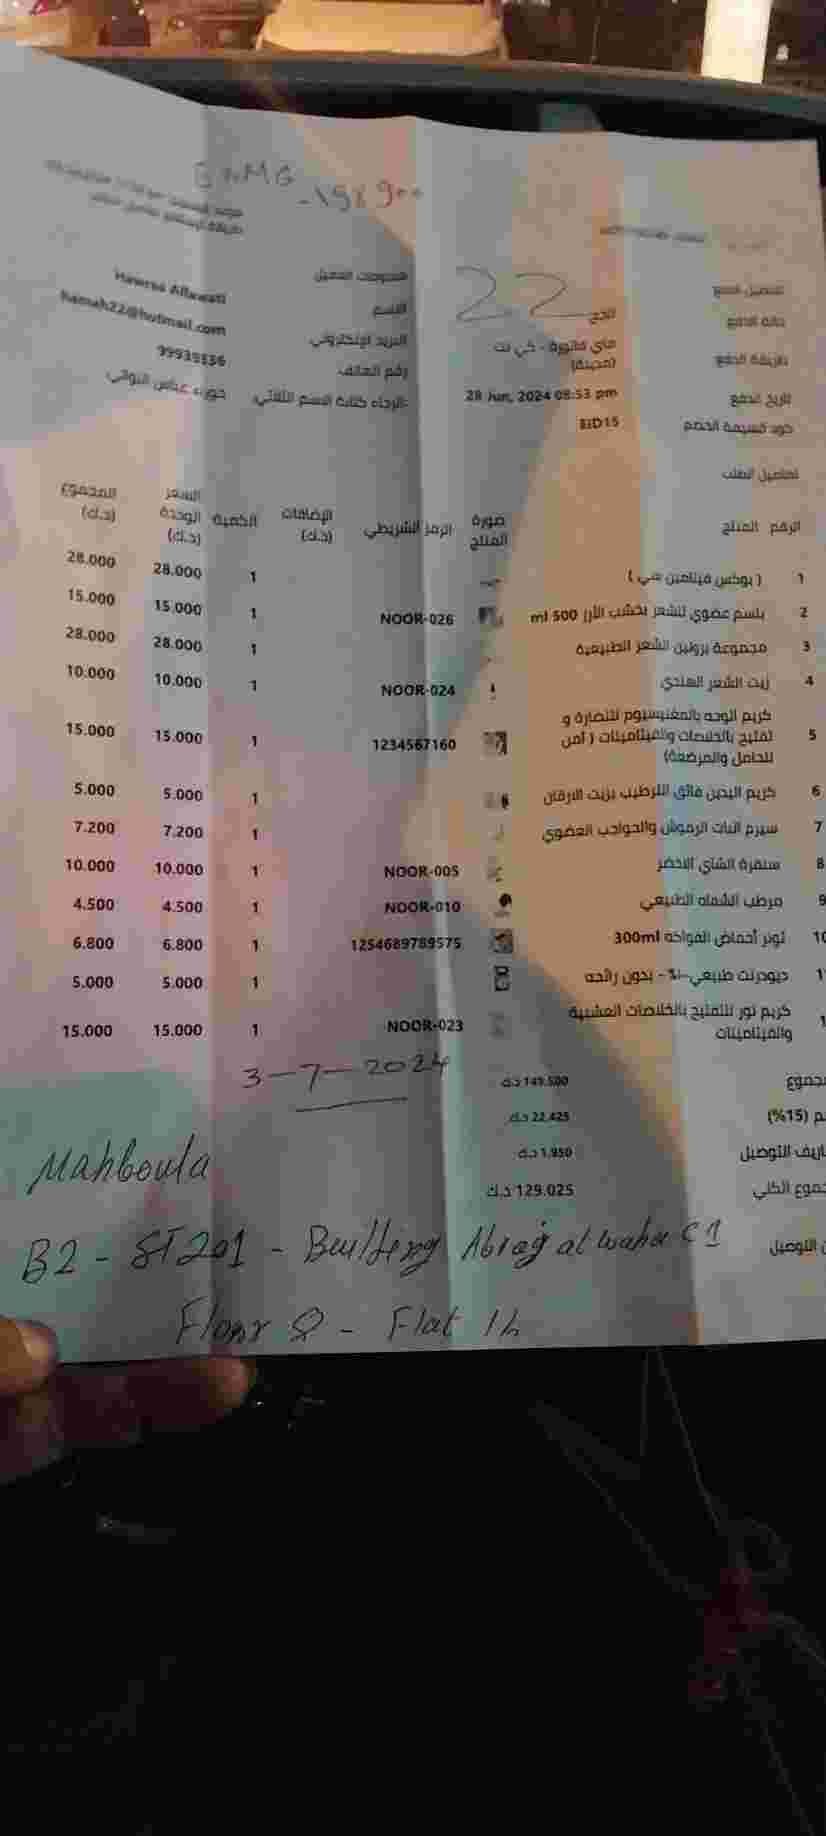 22
معلومات العميل
الاسم Hawraa Allawati
البريد الإلكتروني
رقم الهاتف
الرجاء كتابة الاسم الثلاثي: حوراء عباس اللواتي
تفاصيل الدفع
حالة الدفع
طريقة الدفع ماي فاتورة - كي نت (مدينة)
تاريخ الدفع 28 Jun, 2024 08:53 pm
كود قسيمة الخصم EID15
تفاصيل الطلب
الرقم المنتج صورة المنتج الرمز الشريطي الإضافات (د.ك) الكمية السعر الوحدة (د.ك) المجموع (د.ك)
1 ( بوكس فيتامين سي ) 1 28.000 28.000
2 بلسم عضوي للشعر بخشب الأرز 500 ml NOOR-026 1 15.000 15.000
3 مجموعة بروتين الشعر الطبيعية 1 28.000 28.000
4 زيت الشعر الهندي NOOR-024 1 10.000 10.000
كريم الوجه بالمغنيسيوم للنضارة و
5 تفتيح بالخلاصات والفيتامينات ( آمن 1234567160 1 15.000 15.000
للحامل والمرضعة)
6 كريم اليدين فائق الترطيب بزيت الارقان 1 5.000 5.000
7 سيرم انبات الرموش والحواجب العضوي 1 7.200 7.200
8 سنفرة الشاي الاخضر NOOR-005 1 10.000 10.000
9 مرطب الشفاه الطبيعي NOOR-010 1 4.500 4.500
10 تونر أحماض الفواكه 300ml 1254689789575 1 6.800 6.800
ديودرنت طبيعي - بدون رائحه 1 5.000 5.000
كريم نور للتفتيح بالخلاصات العشبية والفيتامينات NOOR-023 1 15.000 15.000
149.500 د.ك
(15%) 22.425 د.ك
التوصيل 1.950 د.ك
الكلي 129.025 د.ك
التوصيل
3-7-2024
Mahboula
B2 - ST201 - Building Abraj al waha C1
Floor 8 - Flat